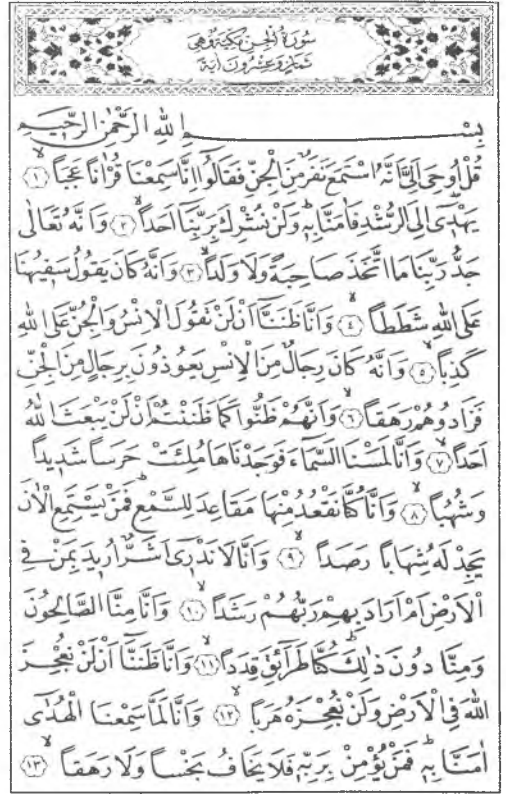 سُورَةُ الْجِنِّ مَكِّيَّةٌ وَهِيَ
ثَمَانٍ وَعِشْرُونَ اٰيَةً
بِسْمِ اللّٰهِ الرَّحْمٰنِ الرَّحٖيمِ
قُلْ اُو۫حِيَ اِلَيَّ اَنَّهُ اسْتَمَعَ نَفَرٌ مِنَ الْجِنِّ فَقَالُٓوا اِنَّا سَمِعْنَا قُرْاٰناً عَجَباًۙ ﴿١﴾
يَهْدٖٓي اِلَى الرُّشْدِ فَاٰمَنَّا بِهٖؕ وَلَنْ نُشْرِكَ بِرَبِّنَٓا اَحَداًۙ ﴿٢﴾ وَاَنَّهُ تَعَالٰى
جَدُّ رَبِّنَا مَا اتَّخَذَ صَاحِبَةً وَلَا وَلَداًۙ ﴿٣﴾ وَاَنَّهُ كَانَ يَقُولُ سَفٖيهُنَا
عَلَى اللّٰهِ شَطَطاًۙ ﴿٤﴾ وَاَنَّا ظَنَنَّٓا اَنْ لَنْ تَقُولَ الْاِنْسُ وَالْجِنُّ عَلَى اللّٰهِ
كَذِباًۙ ﴿٥﴾ وَاَنَّهُ كَانَ رِجَالٌ مِنَ الْاِنْسِ يَعُوذُونَ بِرِجَالٍ مِنَ الْجِنِّ
فَزَادُوهُمْ رَهَقاًۙ ﴿٦﴾ وَاَنَّهُمْ ظَنُّوا كَمَا ظَنَنْتُمْ اَنْ لَنْ يَبْعَثَ اللّٰهُ
اَحَداًۙ ﴿٧﴾ وَاَنَّا لَمَسْنَا السَّمَٓاءَ فَوَجَدْنَاهَا مُلِئَتْ حَرَساً شَدٖيداً
وَشُهُباًۙ ﴿٨﴾ وَاَنَّا كُنَّا نَقْعُدُ مِنْهَا مَقَاعِدَ لِلسَّمْعِؕ فَمَنْ يَسْتَمِعِ الْاٰنَ
يَجِدْ لَهُ شِهَاباً رَصَداًۙ ﴿٩﴾ وَاَنَّا لَا نَدْرٖٓي اَشَرٌّ اُرٖيدَ بِمَنْ فِي
الْاَرْضِ اَمْ اَرَادَ بِهِمْ رَبُّهُمْ رَشَداًۙ ﴿١٠﴾ وَاَنَّا مِنَّا الصَّالِحُونَ
وَمِنَّا دُونَ ذٰلِكَؕ كُنَّا طَرَٓائِقَ قِدَداًۙ ﴿١١﴾ وَاَنَّا ظَنَنَّٓا اَنْ لَنْ نُعْجِزَ
اللّٰهَ فِي الْاَرْضِ وَلَنْ نُعْجِزَهُ هَرَباًۙ ﴿١٢﴾ وَاَنَّا لَمَّا سَمِعْنَا الْهُدٰٓى
اٰمَنَّا بِهٖؕ فَمَنْ يُؤْمِنْ بِرَبِّهٖ فَلَا يَخَافُ بَخْساً وَلَا رَهَقاًۙ ﴿١٣﴾